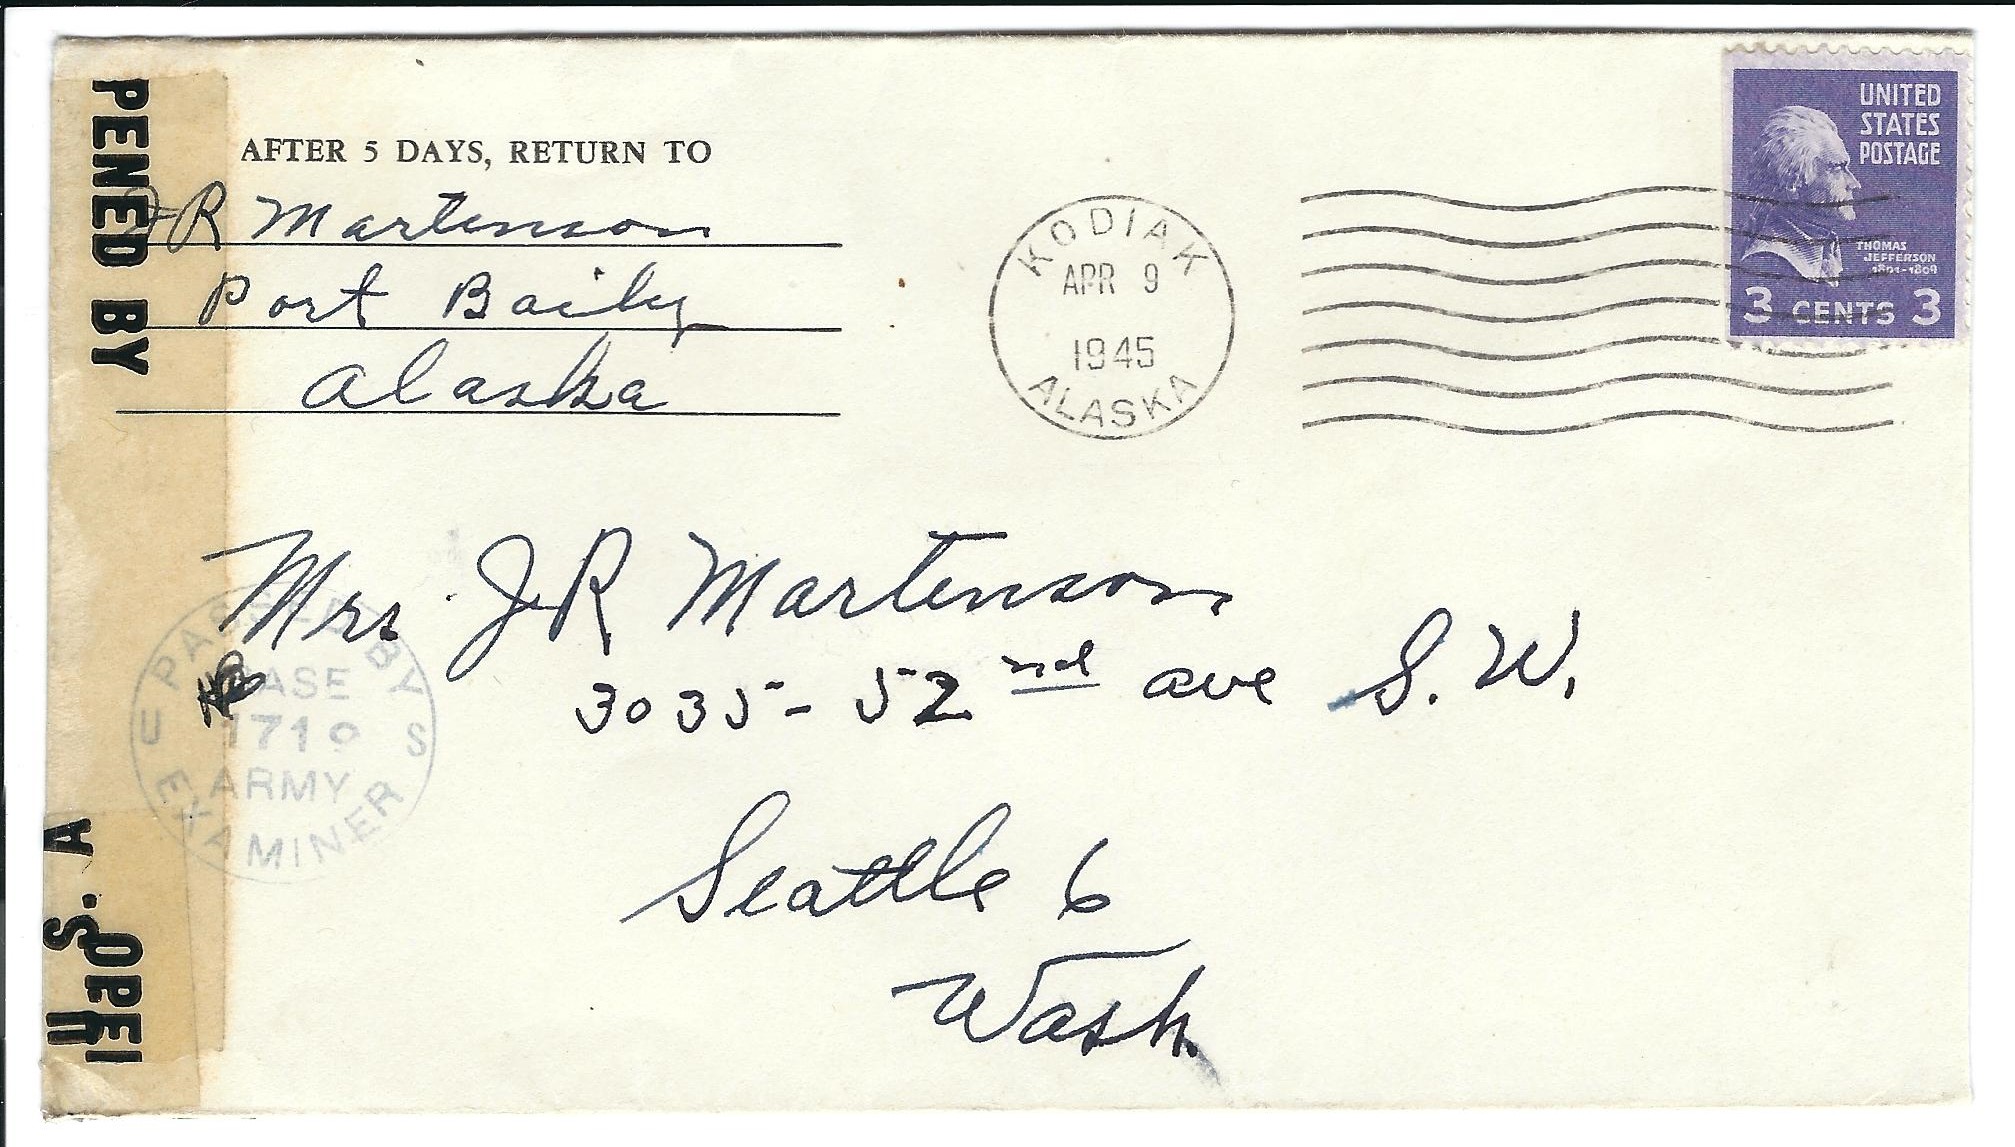 PENED BY
AFTER 5 DAYS, RETURN TO
JR Martenson
Port Baily
Alaska
KODIAK
APR 9
1945
ALASKA
UNITED
STATES
POSTAGE
THOMAS
JEFFERSON
3 CENTS 3
Mrs. JR Martenson
3035 - 52 nd ave S. W.
Seattle 6
Wash.
PASSED BY
BASE
1719
U S
ARMY
EXAMINER
S. A
OPE